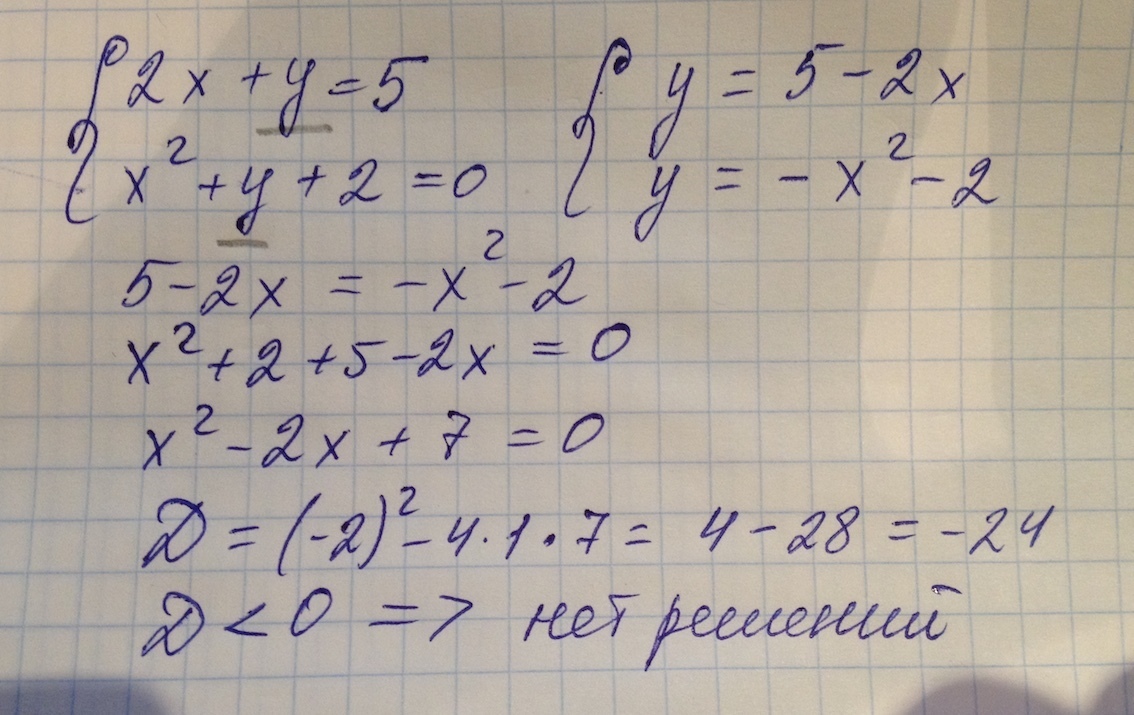 { 2x + y = 5 { y = 5 - 2x
{ x² + y + 2 = 0 { y = - x² - 2
5 - 2x = - x² - 2
x² + 2 + 5 - 2x = 0
x² - 2x + 7 = 0
D = (-2)² - 4 · 1 · 7 = 4 - 28 = -24
D < 0 => нет решений